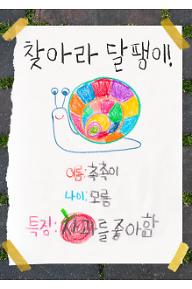 찾아라 달팽이!
이름: 축축이
나이: 모름
특징: 사과를 좋아함